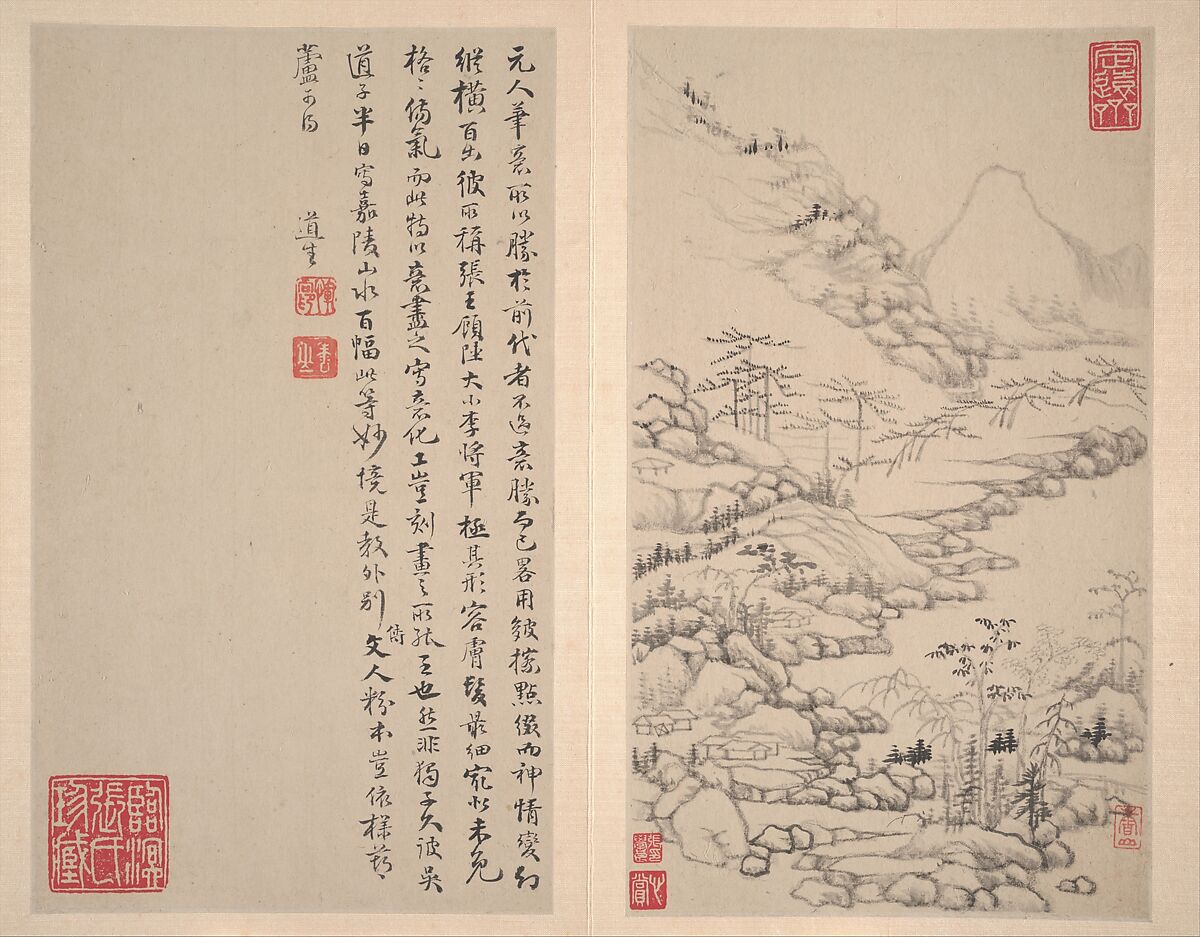 元人筆意所以勝於前代者不過意勝而已畧用皴擦點綴而神情變幻
縱橫百出彼所稱張王顧陸大小李將軍極其形容膚髮最細究必未免
格々傷氣而此特以意盡之寫意化工豈刻畫之所能至也然非獨子久彼吳
道子半日寫嘉陵山水百幅此等妙境是教外別傳文人粉本豈依樣葫
蘆可得
道生
臨溟張氏珍藏